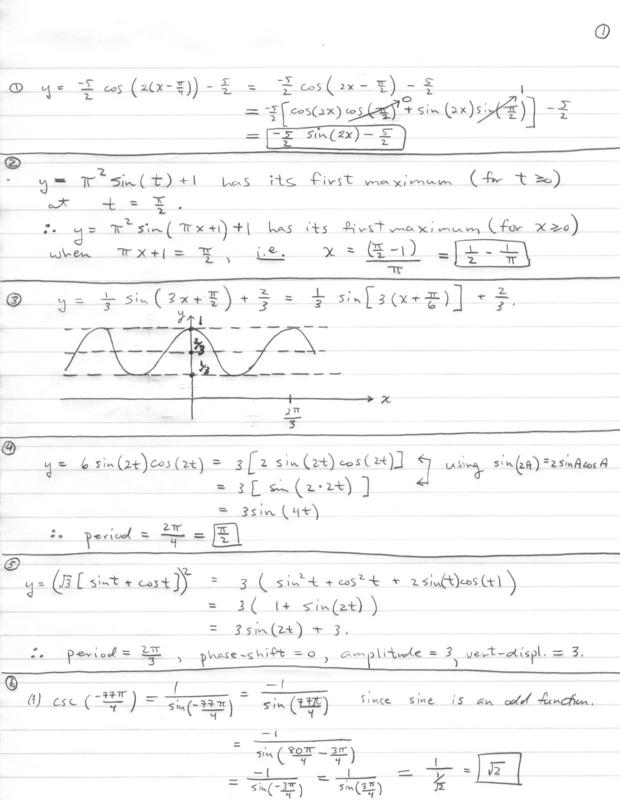 ①
① y = -5/2 cos (2(x - π/4)) - 5/2 = -5/2 cos (2x - π/2) - 5/2
= -5/2 [cos(2x) cos(π/2) 0 + sin (2x) sin(π/2) 1] - 5/2
= -5/2 sin(2x) - 5/2
②
y = π² sin(t) + 1 has its first maximum (for t ≥ 0)
at t = π/2.
∴ y = π² sin(πx+1)+1 has its first maximum (for x ≥ 0)
when πx+1 = π/2, i.e. x = (π/2 - 1)/π = 1/2 - 1/π
③ y = 1/3 sin(3x + π/2) + 2/3 = 1/3 sin[3(x + π/6)] + 2/3.
y
1
2/3
1/3
x
2π/3
④
y = 6 sin(2t) cos(2t) = 3[2 sin(2t) cos(2t)] using sin(2A) = 2 sinA cosA
= 3[sin (2·2t)]
= 3 sin (4t)
∴ period = 2π/4 = π/2
⑤
y = (√3 [sint + cost])² = 3 (sin²t + cos²t + 2 sin(t)cos(t))
= 3 (1 + sin(2t))
= 3 sin(2t) + 3.
∴ period = 2π/3, phase-shift = 0, amplitude = 3, vert-displ. = 3.
⑥
(1) csc(-77π/4) = 1/sin(-77π/4) = -1/sin(77π/4) since sine is an odd function.
= -1/sin(80π/4 - 3π/4)
= -1/sin(-3π/4) = 1/sin(3π/4) = 1/(1/√2) = √2